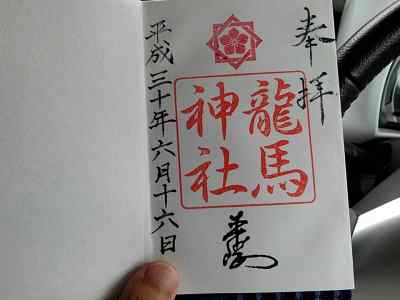 奉拝
龍馬
神社
平成三十年六月十六日